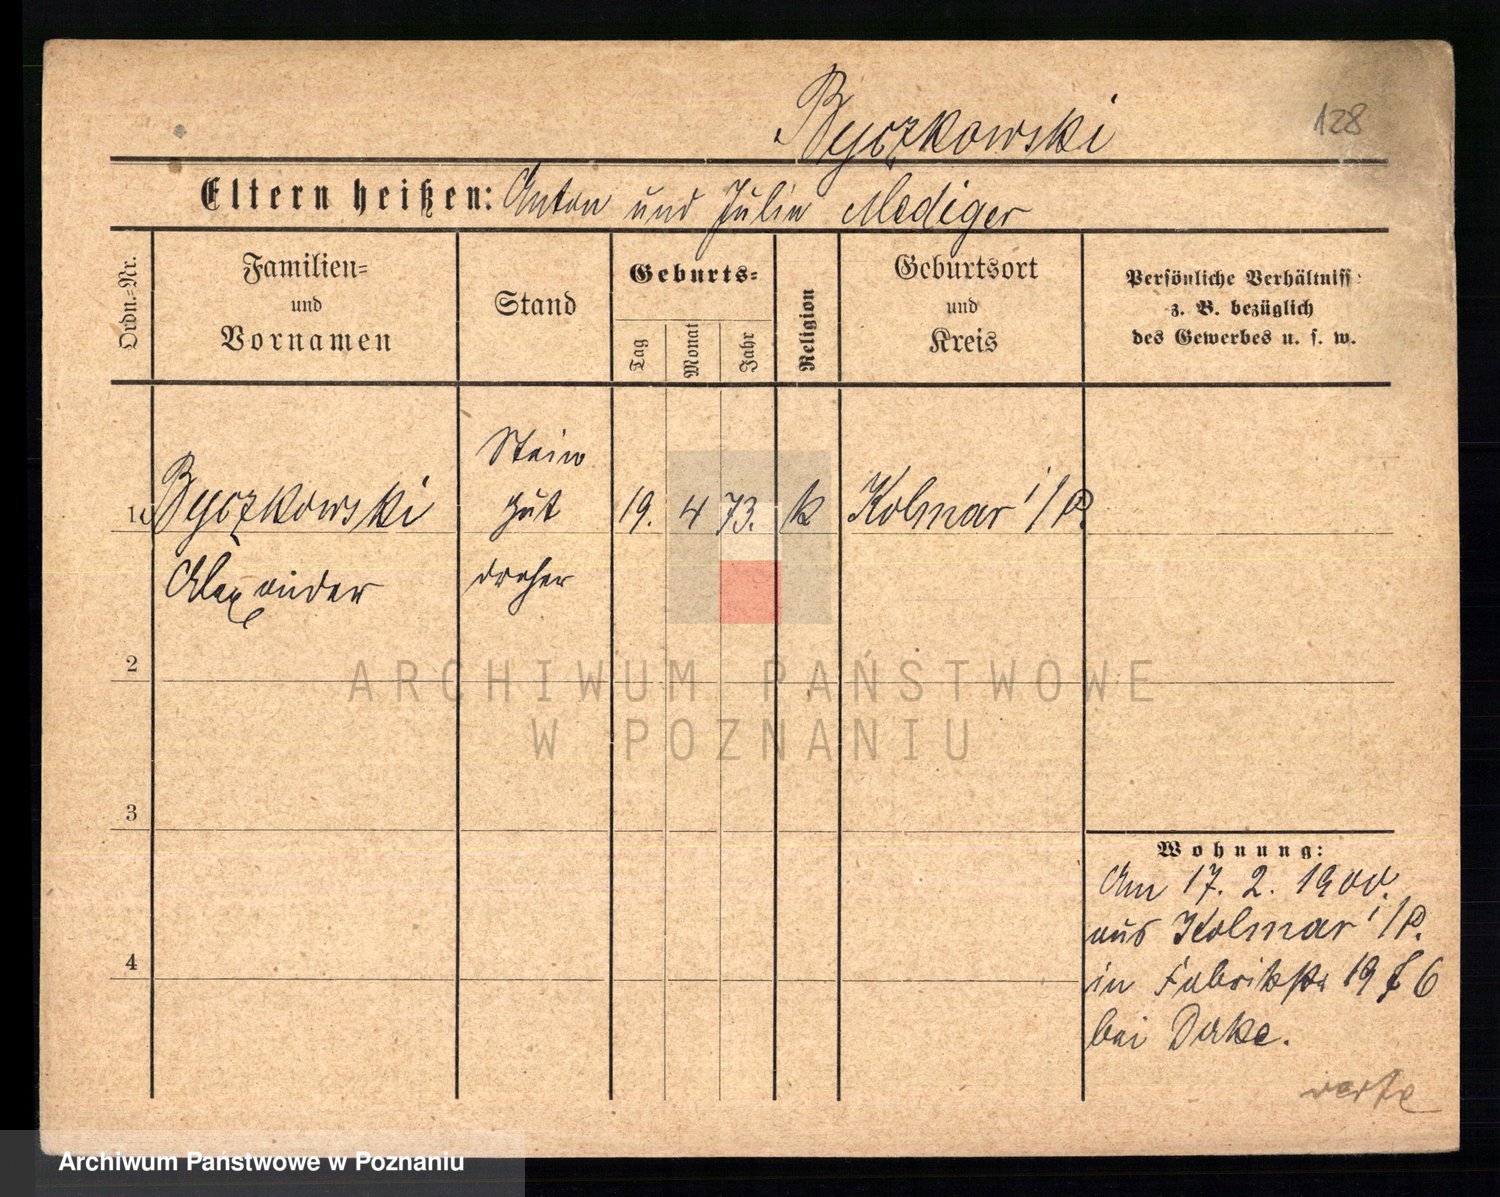 Byczkowski 128
Eltern heißen: Anton und Julie Mediger
Ordn.-Nr.
Familien-
und
Vornamen
Stand
Geburts-
Tag
Monat
Jahr
Religion
Geburtsort
und
Kreis
Persönliche Verhältniss
z. B. bezüglich
des Gewerbes u. s. w.
Stein
1 Byczkowski gut 19. 4 73. k Kolmar i/P.
Alexander dreher
2
ARCHIWUM PAŃSTWOWE
W POZNANIU
3
Wohnung:
Am 17. 2. 1900.
aus Kolmar i/P.
4
in Fabrikstr 19 6
bei Dake.
verte
Archiwum Państwowe w Poznaniu